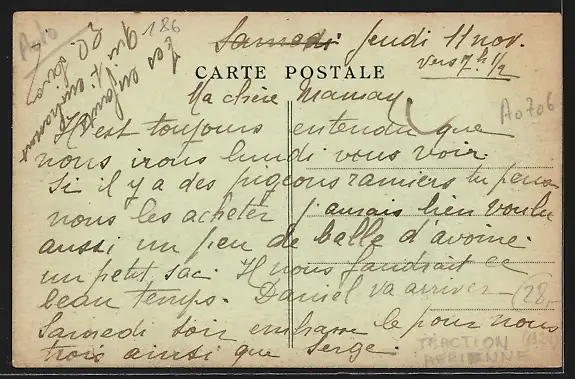 186
Samedi Jeudi 11 nov.
vers 7h 1/2
CARTE POSTALE
Ma chère Maman
Il est toujours entendu que
nous irons lundi vous voir.
Si il y a des pigeons ramiers tu peux
nous les acheter j'aurais bien voulu
aussi un peu de balle d'avoine.
un petit sac. Il nous faudrait ce
beau temps. Daniel va arriver
Samedi soir embrasse le pour nous
trois ainsi que Serge.
Les enfants
qui t'embrassent
A0706
28,-
TRACTION
AERIENNE